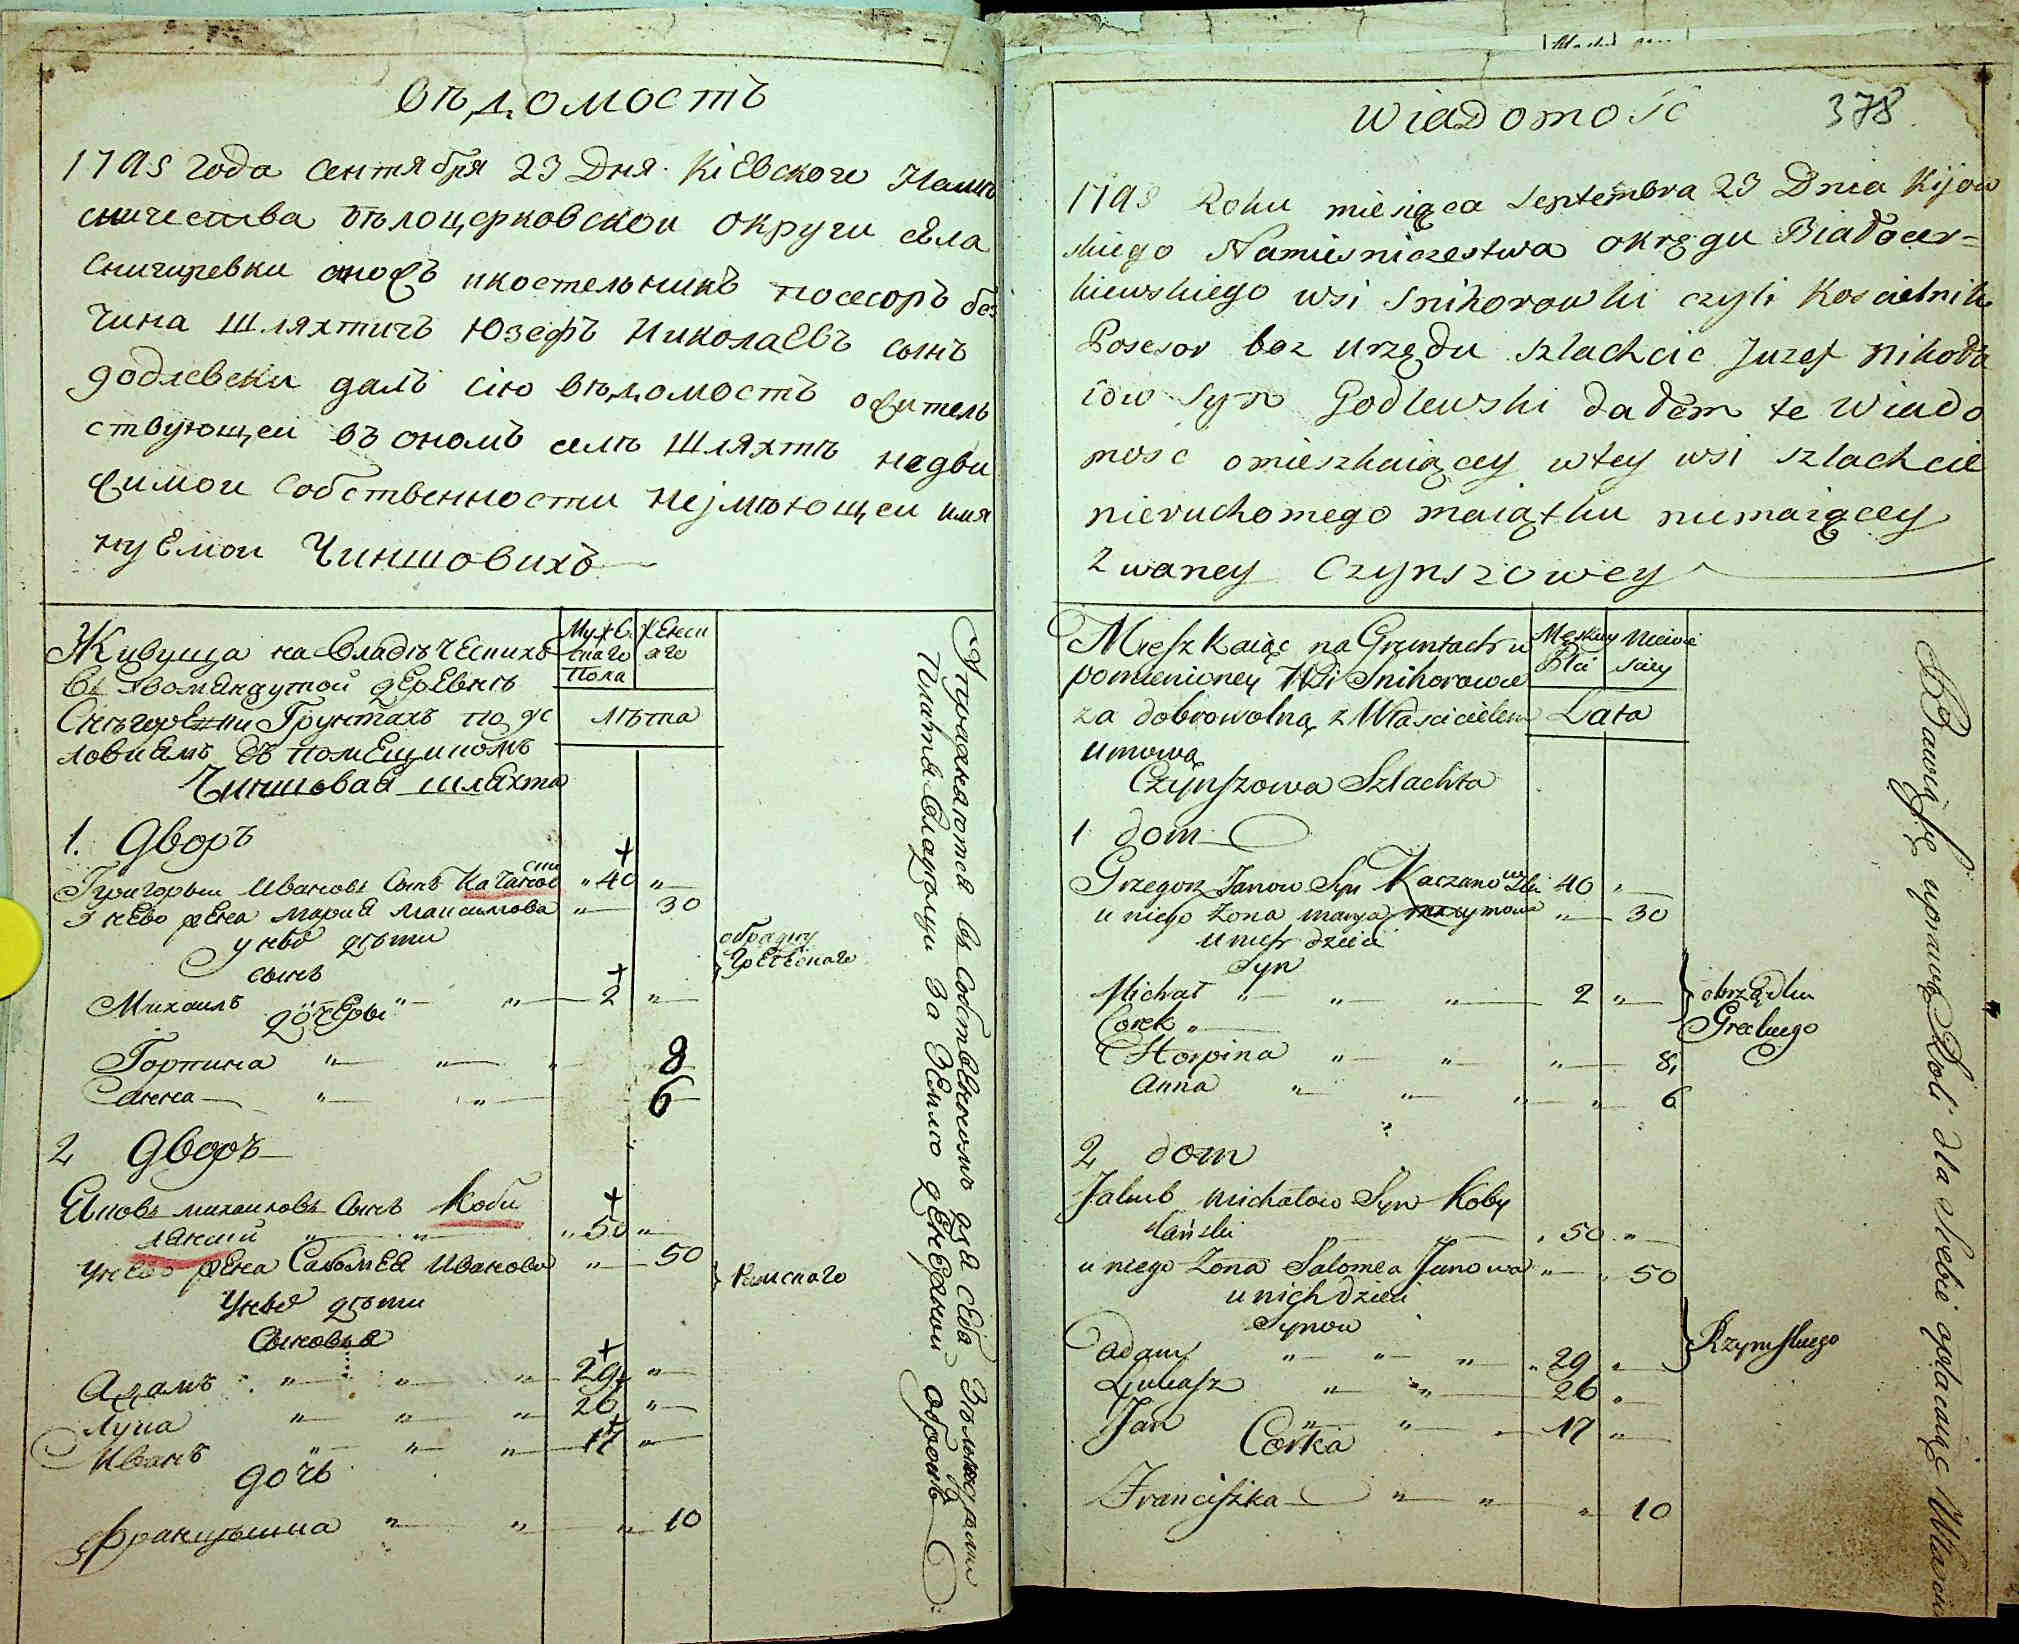 вѣдомость
1795 года сентября 23 Дня Кіевского Намѣ
сничества бѣлоцерковской округи села
Снигиревки ижъ икостельникъ посесоръ без
чина шляхтичъ Юзефъ Николаевъ сынъ
годлевски далъ сію вѣдомость ожитель
ствующей въ ономъ селѣ шляхтѣ недви
жимои собственности неімѣющеи имя
нуемои Чиншовихъ
Живуща на владѣческихъ
въ деревнѣ
Грунтахъ по ус
ловиямъ съ помещикомъ
Чиншовая шляхта
Мужес
скаго
Пола
женск
аго
лѣта
1. дворъ
Григорын Ивановъ сынъ Качанов
ски
" 40 "
У нево жена Мария Максимова " 30
у нево дѣти
сынъ
Михаилъ " " 2 "
дочеры
Горпина " " " 8
анна " " 6
обряду
Греческаго
2 дворъ
Яковъ михаиловъ сынъ Коби
лански " " " 50 "
У нево жена Саломея Иванова " 50
У нево дѣти
Сыновья
Адамъ " " " 29 "
Лука " " " 26 "
Иванъ " " " 17 "
дочь
францышка " " " 10
Римскаго
Упражняются въ собственномъ для себя
Платя владѣлцу за Землю денежной оброкъ
Wiadomość 378
1795 Roku miesiąca Septembra 23 Dnia Kijow
skiego Namiesniczestwa okręgu Białocer=
kiewskiego wsi Snihorowki czyli Koscielnik
Posesor bez urzędu szlachcic Juzef Nikoła
iow Syn Godlewski dałem te Wiado
mosc omieszkaiącey wtey wsi szlachcie
nieruchomego maiątku niemaiącey
zwaney Czynszowey
Mieszkaiąc na Gruntach u
pomienioney Wsi Snihorowce
za dobrowolną z Włascicielem
umową
Czynszowa Szlachta
Męskiey
Płci
Niewie
sciey
Lata
1 dom
Grzegorz Janow Syn Kaczanowski 40 "
u niego Zona marya maxymowa " 30
u nich dzieci
Syn
Michał " " " 2 "
Corek "
Horpina " " " 8
Anna " " " " 6
obrządku
Greckiego
2 dom
Jakub Michałow Syn Koby
lański " 50 "
u niego Zona Salomea Janowa " " 50
u nich dzieci
Synow
Adam " " " " 29 "
Łukasz " " 26 "
Jan " " 17 "
Corka
Franciszka " " " 10
Rzymskiego
Bawią się uprawą Roli dla siebie opłacaiąc Właści